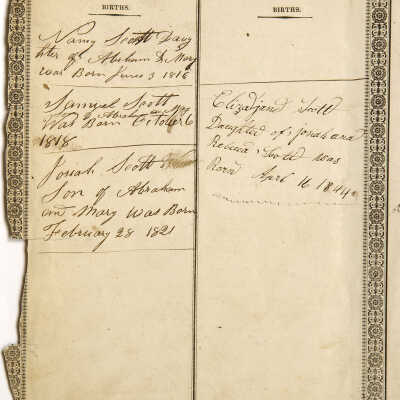 BIRTHS.
Nancy Scott Daug
hter of Abraham & Mary
was Born June 3 1816
Samuel Scott
of Abraham
Was Born October 6
1818
Josiah Scott
Son of Abraham
an Mary was Born
February 28 1821
BIRTHS.
Elizabjane Scott
Daughter of Josiah and
Rebecca Scott was
Born April 16 1844